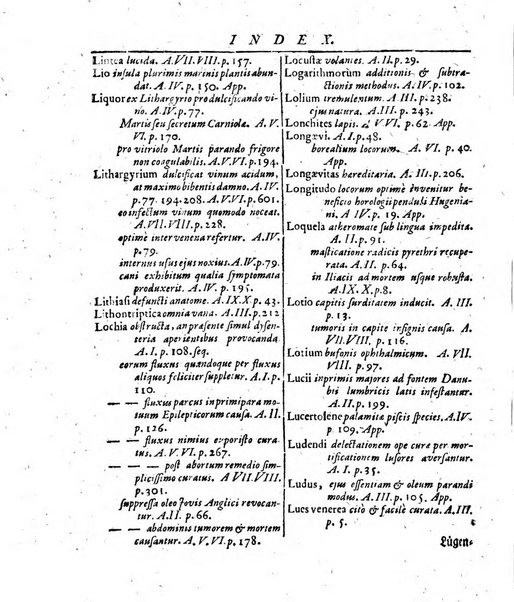 INDEX.
Lintea lucida. A.VII.VIII. p. 157.
Lio insula plurimis marinis plantis abun-
dat. A. IV. p. 150. App.
Liquor ex Lithargyrio pro dulcificando vi-
no. A. IV. p. 77.
Martis seu secretum Carniolæ. A. V.
VI. p. 170.
pro vitriolo Martis parando frigore
non coagulabilis. A. V.VI. p. 194.
Lithargyrium dulcificat vinum acidum,
at maximo bibentis damno. A. IV.
p. 77. 194. 208. A. V.VI. p. 601.
eo infectum vinum quomodo noceat.
A. VII.VIII. p. 228.
optimè intervenæ refertur. A. IV.
p. 79.
internus usus ejus noxius. A. IV. p. 79.
cani exhibitum qualia symptomata
produxerit. A. IV. p. 195.
Lithiasi defuncti anatome. A. IX. X. p. 43.
Lithontriptica omnia vana. A. III. p. 212
Lochia obstructa, an præsente simul dysen-
teria aperientibus provocanda.
A. I. p. 108. seq.
eorum fluxus quandoque per fluxus
aliquos feliciter suppletus. A. I. p.
110.
— — fluxus parcus in primipara mo-
tuum Epilepticorum causa. A. II.
p. 126.
— — fluxus nimius exporisto cura
tus. A. V. VI. p. 267.
— — — post abortum remedio sim-
plicissimo curatus. A VII. VIII.
p. 301.
suppressa oleo Jovis Anglici revocan-
tur. A. II. p. 66.
— — abdominis tumorem & mortem
causantur. A. V. VI. p. 178.
Locustæ volantes. A. II. p. 29.
Logarithmorum additionis & subtra-
ctionis methodus. A. IV. p. 102.
Lolium tremulentum. A. III. p. 238.
ejus natura. A. III. p. 243.
Lonchites lapis. A. V.VI. p. 62. App.
Longævi. A. I. p. 48.
borealium locorum. A. VI. p. 40.
App.
Longævitas hereditaria. A. III. p. 206.
Longitudo locorum optimè invenitur be-
neficio horologii penduli Hugenia-
ni. A IV. p. 19. App.
Loquela atheromate sub lingua impedita.
A. II. p. 91.
masticatione radicis pyrethri recupe-
rata. A. II. p. 64.
in Iliacis ad mortem usque robusta.
A. IX. X. p. 8.
Lotio capitis surditatem inducit. A. III.
p. 13.
tumoris in capite insignis causa. A.
VII. VIII. p. 116.
Lotium bufonis ophthalmicum. A. VII.
VIII. p. 97.
Lucii inprimis majores ad fontem Danu-
bii lumbricis latis infestantur.
A. III. p. 199.
Lucertolene palamita piscis species. A. IV.
p. 109. App.
Ludendi delectationem ope cura per mor-
tificationem lusores aversantur.
A. I. p. 35.
Ludus, ejus essentiam & oleum parandi
modus. A. III. p. 105. App.
Lues venerea citò & facilè curata. A. III.
p. 5.
Lügen-